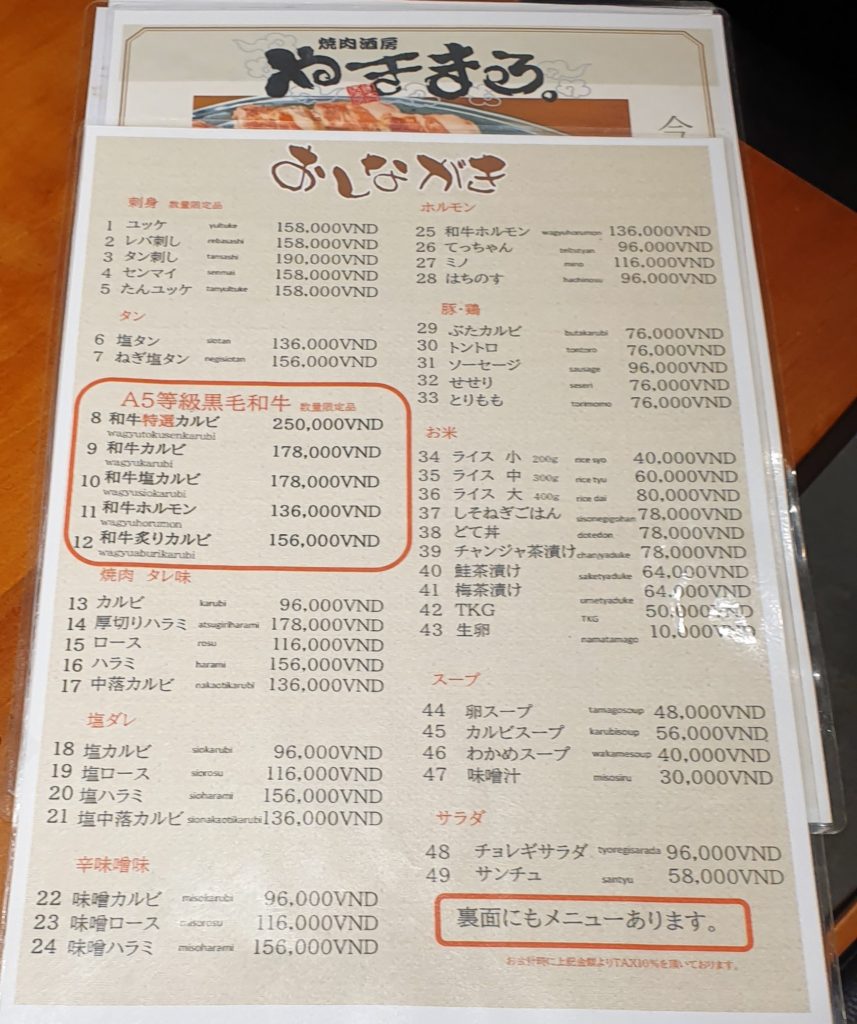 焼肉酒房
やきまる。
今
おしながき
刺身 数量限定品
1 ユッケ yultuke 158.000VND
2 レバ刺し rebasashi 158.000VND
3 タン刺し tansashi 190.000VND
4 センマイ senmai 158.000VND
5 たんユッケ tanyultuke 158.000VND
タン
6 塩タン siotan 136.000VND
7 ねぎ塩タン negisiotan 156,000VND
A5等級黒毛和牛 数量限定品
8 和牛特選カルビ 250,000VND
wagyutokusenkarubi
9 和牛カルビ 178,000VND
wagyukarubi
10 和牛塩カルビ 178,000VND
wagyusiokarubi
11 和牛ホルモン 136,000VND
wagyuhorumon
12 和牛炙りカルビ 156,000VND
wagyuaburikarubi
焼肉 タレ味
13 カルビ karubi 96,000VND
14 厚切りハラミ atsugiriharami 178,000VND
15 ロース rosu 116,000VND
16 ハラミ harami 156,000VND
17 中落カルビ nakaotikarubi 136,000VND
塩ダレ
18 塩カルビ siokarubi 96.000VND
19 塩ロース siorosu 116,000VND
20 塩ハラミ sioharami 156,000VND
21 塩中落カルビ sionakaotikarubi 136,000VND
辛味噌味
22 味噌カルビ misokarubi 96,000VND
23 味噌ロース misorosu 116.000VND
24 味噌ハラミ misoharami 156,000VND
ホルモン
25 和牛ホルモン wagyuhorumon 136,000VND
26 てっちゃん teltsyan 96,000VND
27 ミノ mino 116,000VND
28 はちのす hachinosu 96,000VND
豚・鶏
29 ぶたカルビ butakarubi 76,000VND
30 トントロ tontoro 76,000VND
31 ソーセージ sausage 96,000VND
32 せせり seseri 76,000VND
33 とりもも torimomo 76,000VND
お米
34 ライス 小 200g rice syo 40,000VND
35 ライス 中 300g rice tyu 60,000VND
36 ライス 大 400g rice dai 80,000VND
37 しそねぎごはん sisonegigohan 78,000VND
38 どて丼 dotedon 78,000VND
39 チャンジャ茶漬け chanjyaduke 78,000VND
40 鮭茶漬け saketyaduke 64,000VND
41 梅茶漬け umetyaduke 64.000VND
42 TKG TKG 50.000VND
43 生卵 namatamago 10,000VND
スープ
44 卵スープ tamagosoup 48,000VND
45 カルビスープ karubisoup 56,000VND
46 わかめスープ wakamesoup 40,000VND
47 味噌汁 misosiru 30,000VND
サラダ
48 チョレギサラダ tyoregisarada 96,000VND
49 サンチュ santyu 58,000VND
裏面にもメニューあります。
お会計時に上記金額よりTAX10%を頂いております。